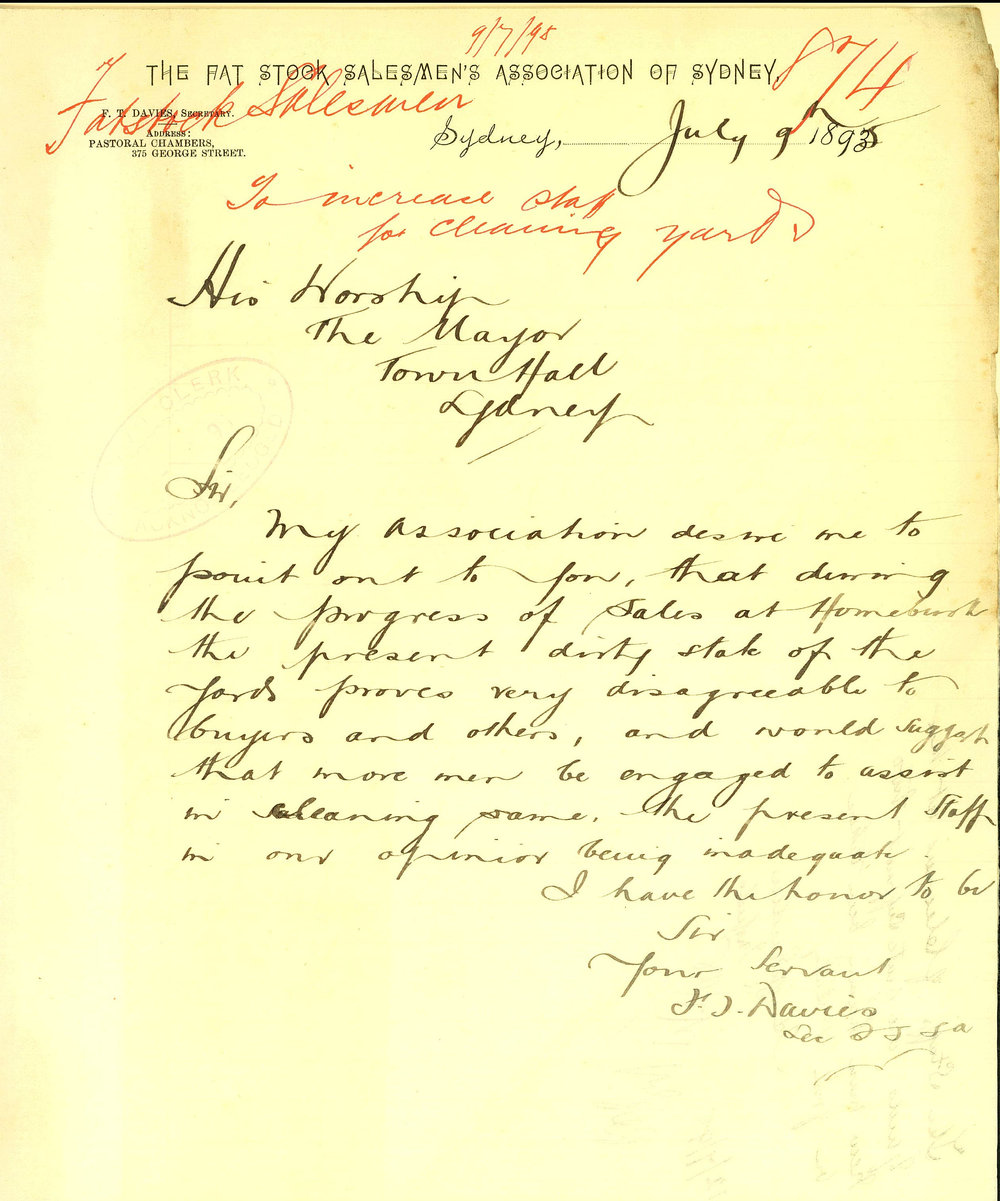 9/7/95
THE FAT STOCK SALESMEN'S ASSOCIATION OF SYDNEY,
874
Fatstock Salesmen
F. T. DAVIES, SECRETARY.
ADDRESS:
PASTORAL CHAMBERS,
375 GEORGE STREET.
Sydney, July 9th 1895
To increase staff
for cleaning yards
His Worship
The Mayor
Town Hall
Sydney
CLERK
Sir,
My Association desire me to
point out to you, that during
the progress of Sales at Homebush
the present dirty state of the
Yards proves very disagreeable to
buyers and others, and would suggest
that more men be engaged to assist
in cleaning same. the present Staff
in our opinion being inadequate.
I have the honor to be
Sir
Your Servant
F. T. Davies
Sec F S S A